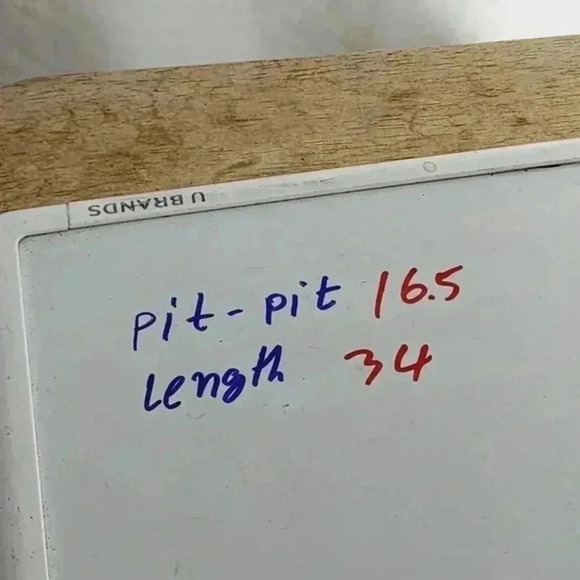 U BRANDS
pit-pit 16.5
Length 34